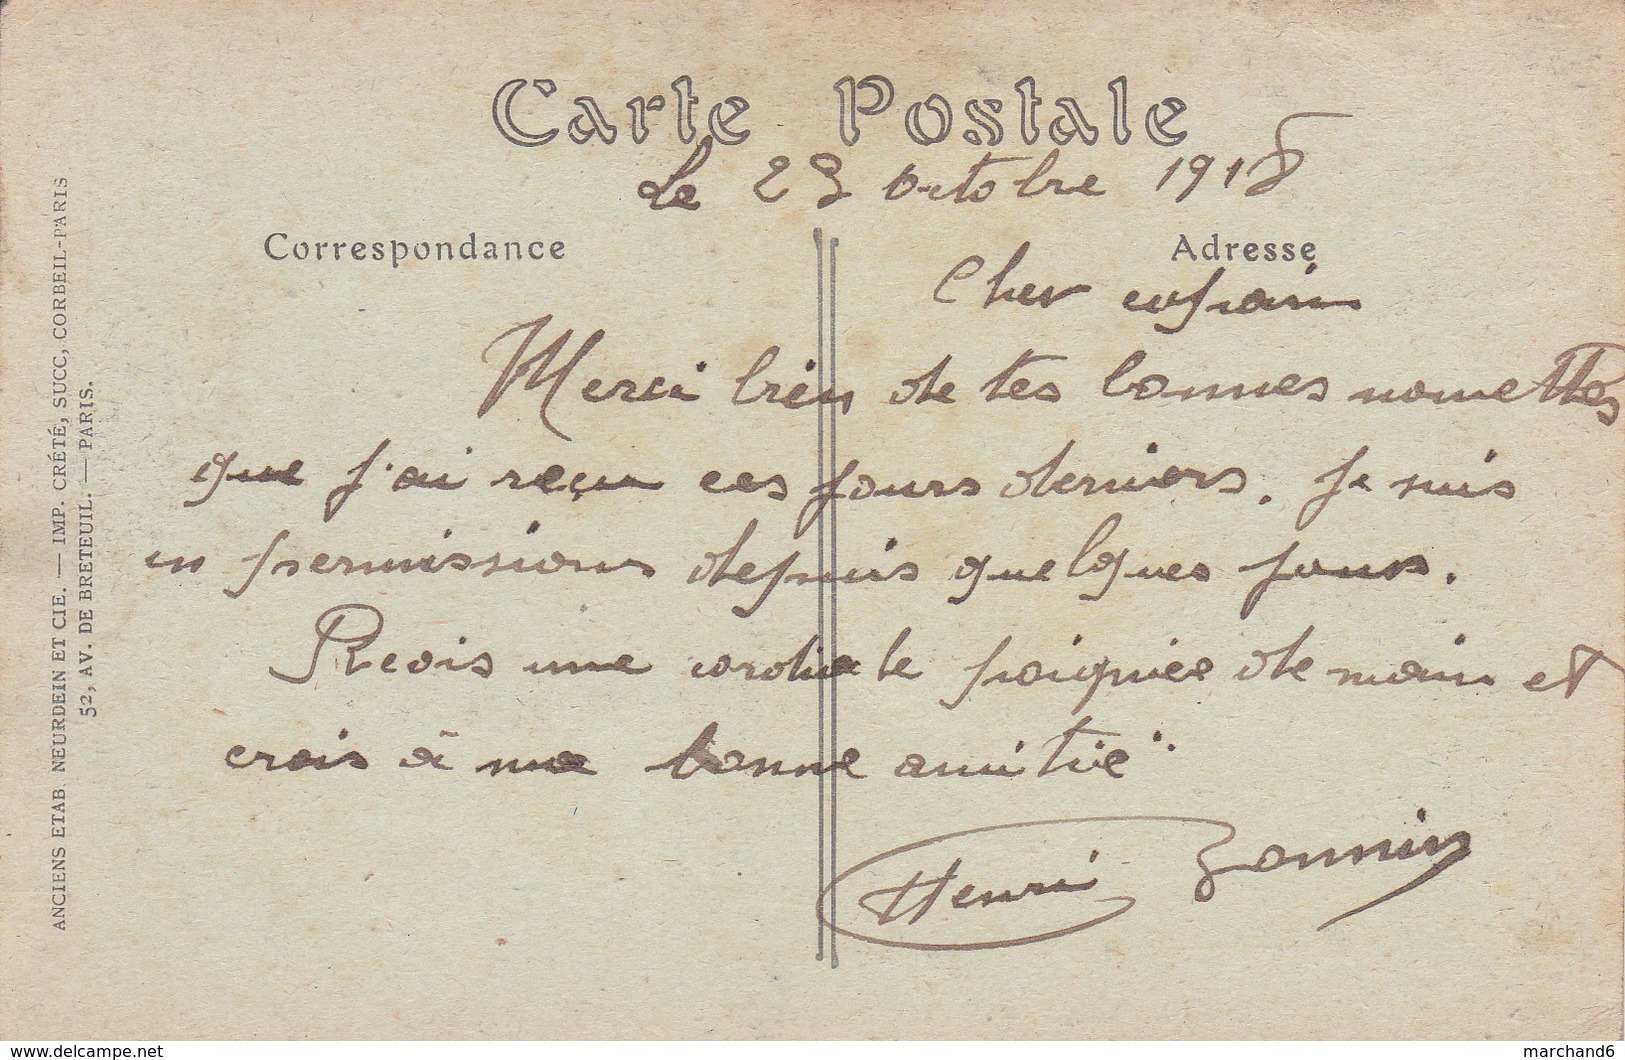 Carte Postale
Le 23 Octobre 1918
Correspondance
Adresse
Cher copain
Merci bien de tes bonnes nouvelles
que j'ai reçu ces jours derniers. Je suis
en permissions depuis quelques jours.
Recois une cordiale poignée de main et
crois à ma bonne amitié
Henri Zonnin
ANCIENS ETAB. NEURDEIN ET CIE. — IMP. CRÉTÉ, SUCC, CORBEIL-PARIS
52, AV. DE BRETEUIL. — PARIS.
www.delcampe.net
marchand6